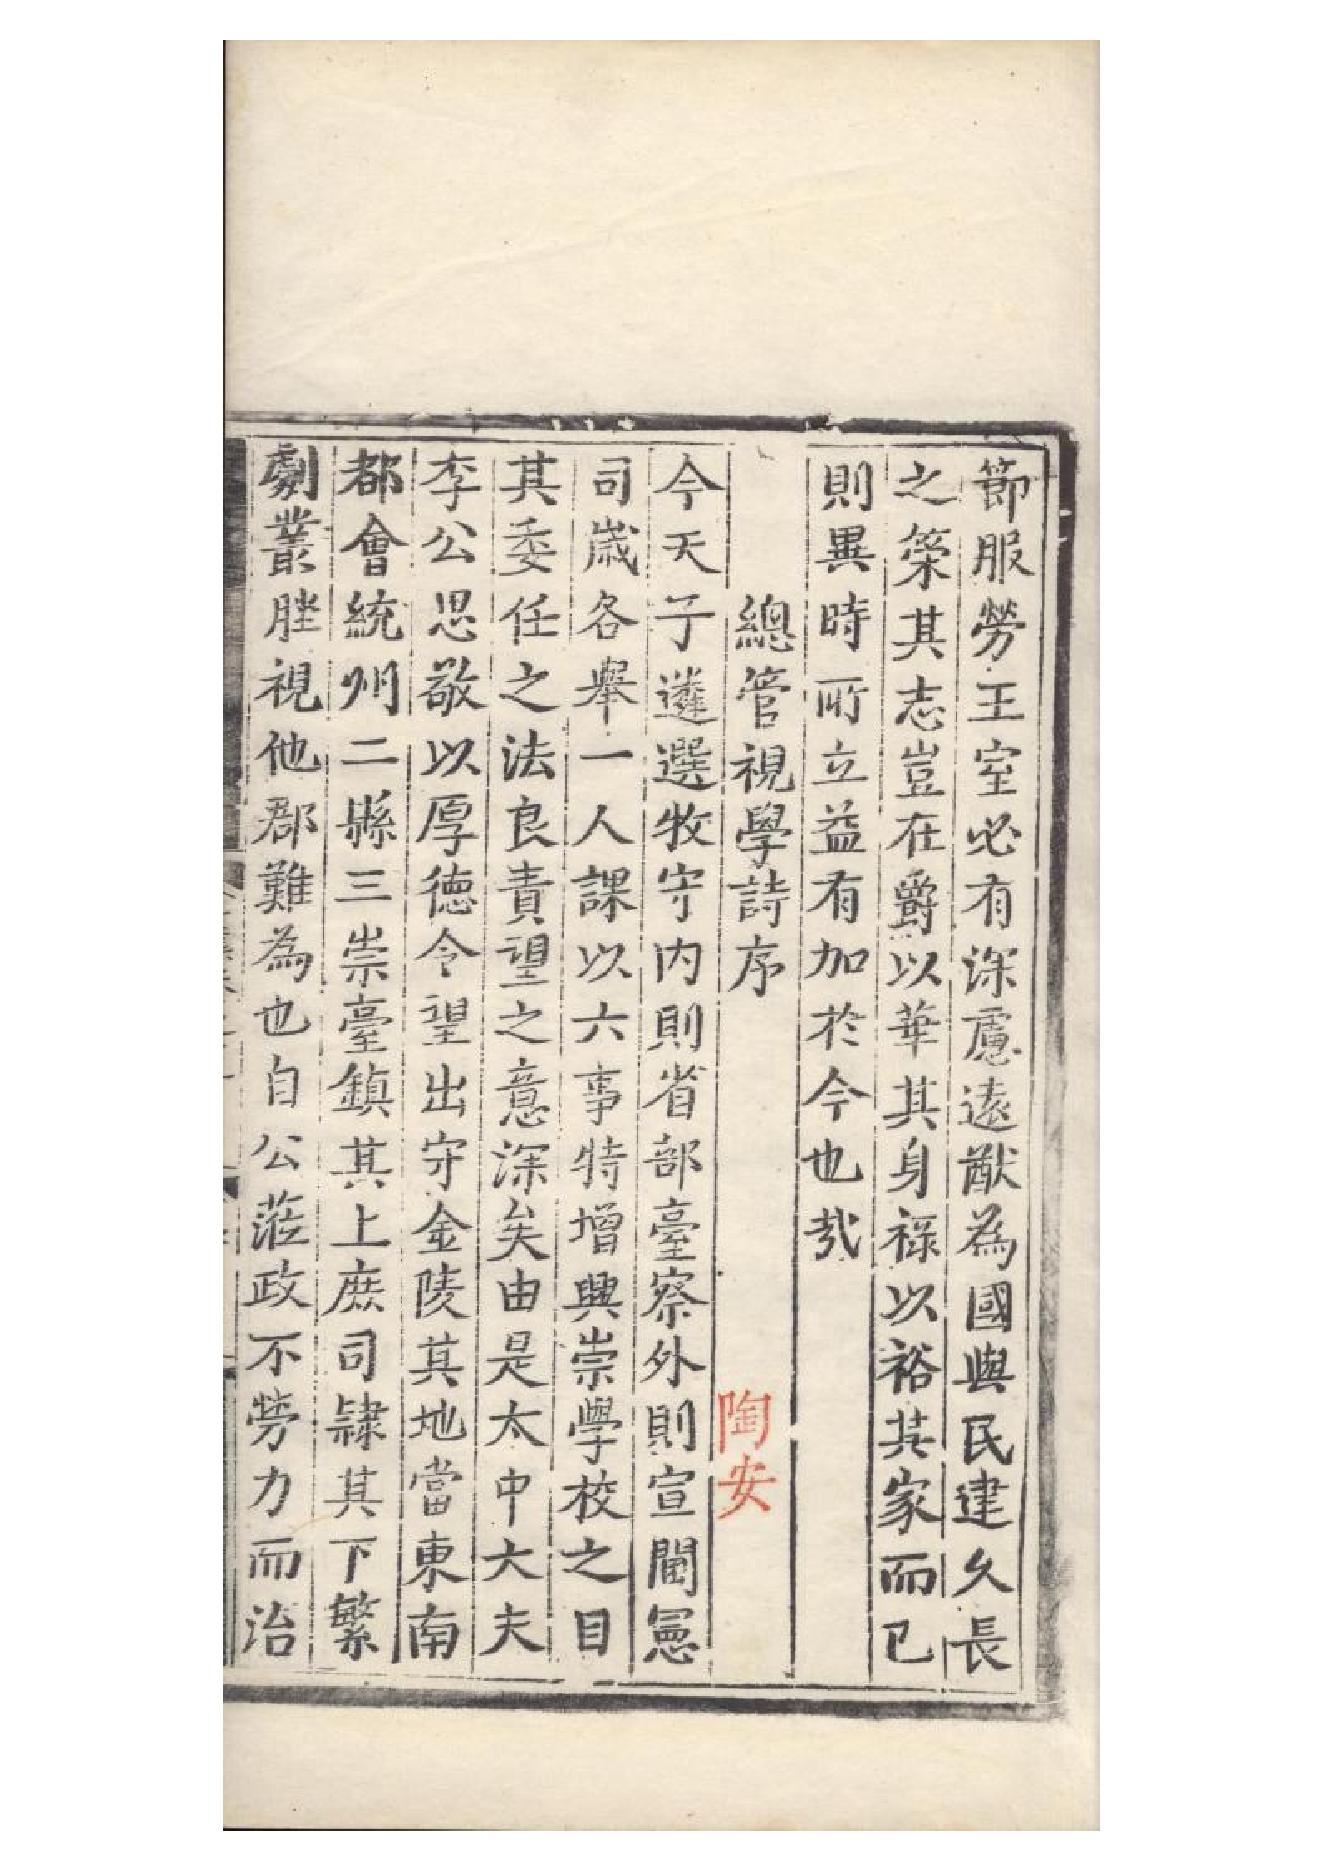 節服勞王室必有深慮遠猷為國與民建久長
之策其志豈在爵以華其身祿以裕其家而已
則異時所立益有加於今也哉
總管視學詩序
陶安
今天子遴選牧守内則省部臺察外則宣閫憲
司歲各舉一人課以六事特增興崇學校之目
其委任之法良責望之意深矣由是太中大夫
李公思敬以厚德令望出守金陵其地當東南
都會統州二縣三崇臺鎮其上庶司隷其下繁
劇叢脞視他郡難為也自公蒞政不勞力而治